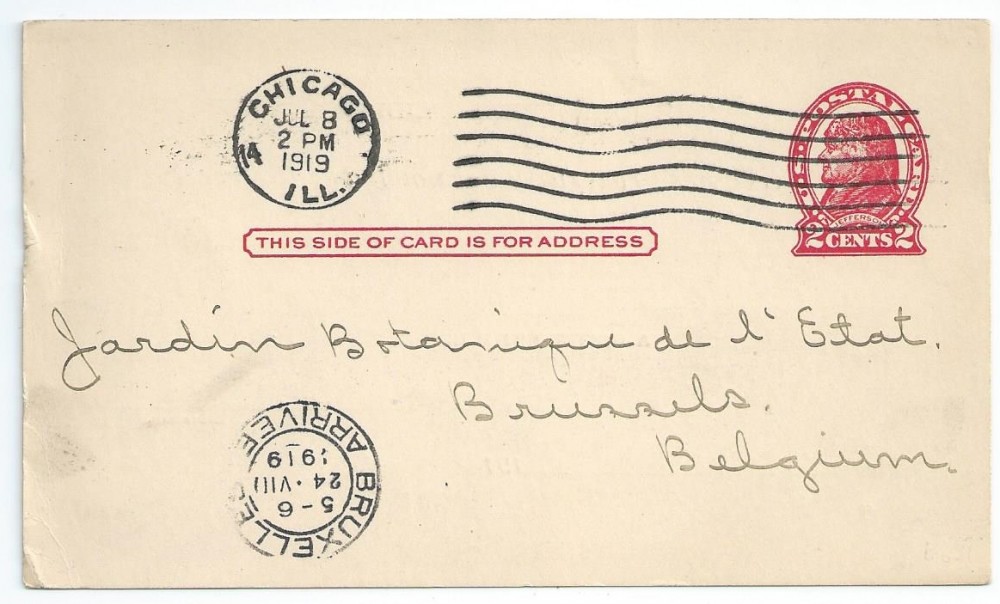 CHICAGO
JUL 8
2 PM
1919
14
ILL.
U.S. POSTAL CARD.
JEFFERSON
2 CENTS 2
THIS SIDE OF CARD IS FOR ADDRESS
Jardin Botanique de l'Etat.
Brussels.
Belgium.
BRUXELLES
5-6
24 · VII
1919
ARRIVEE